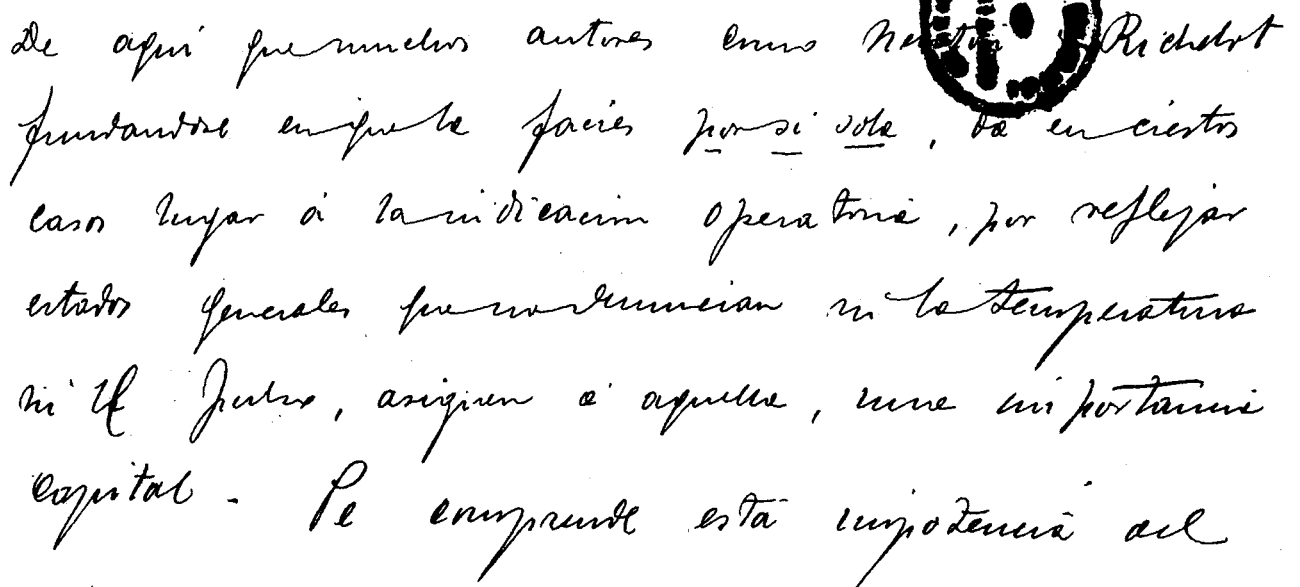 De aqui que muchos autores como Richelot
fundandose en que la facies por si sola, da en ciertos
casos lugar á la indicacion operatoria, por reflejar
estados generales que no denuncian ni la temperatura
ni el pulso, asignen á aquella, una importancia
Capital - Se comprende esta impotencia del